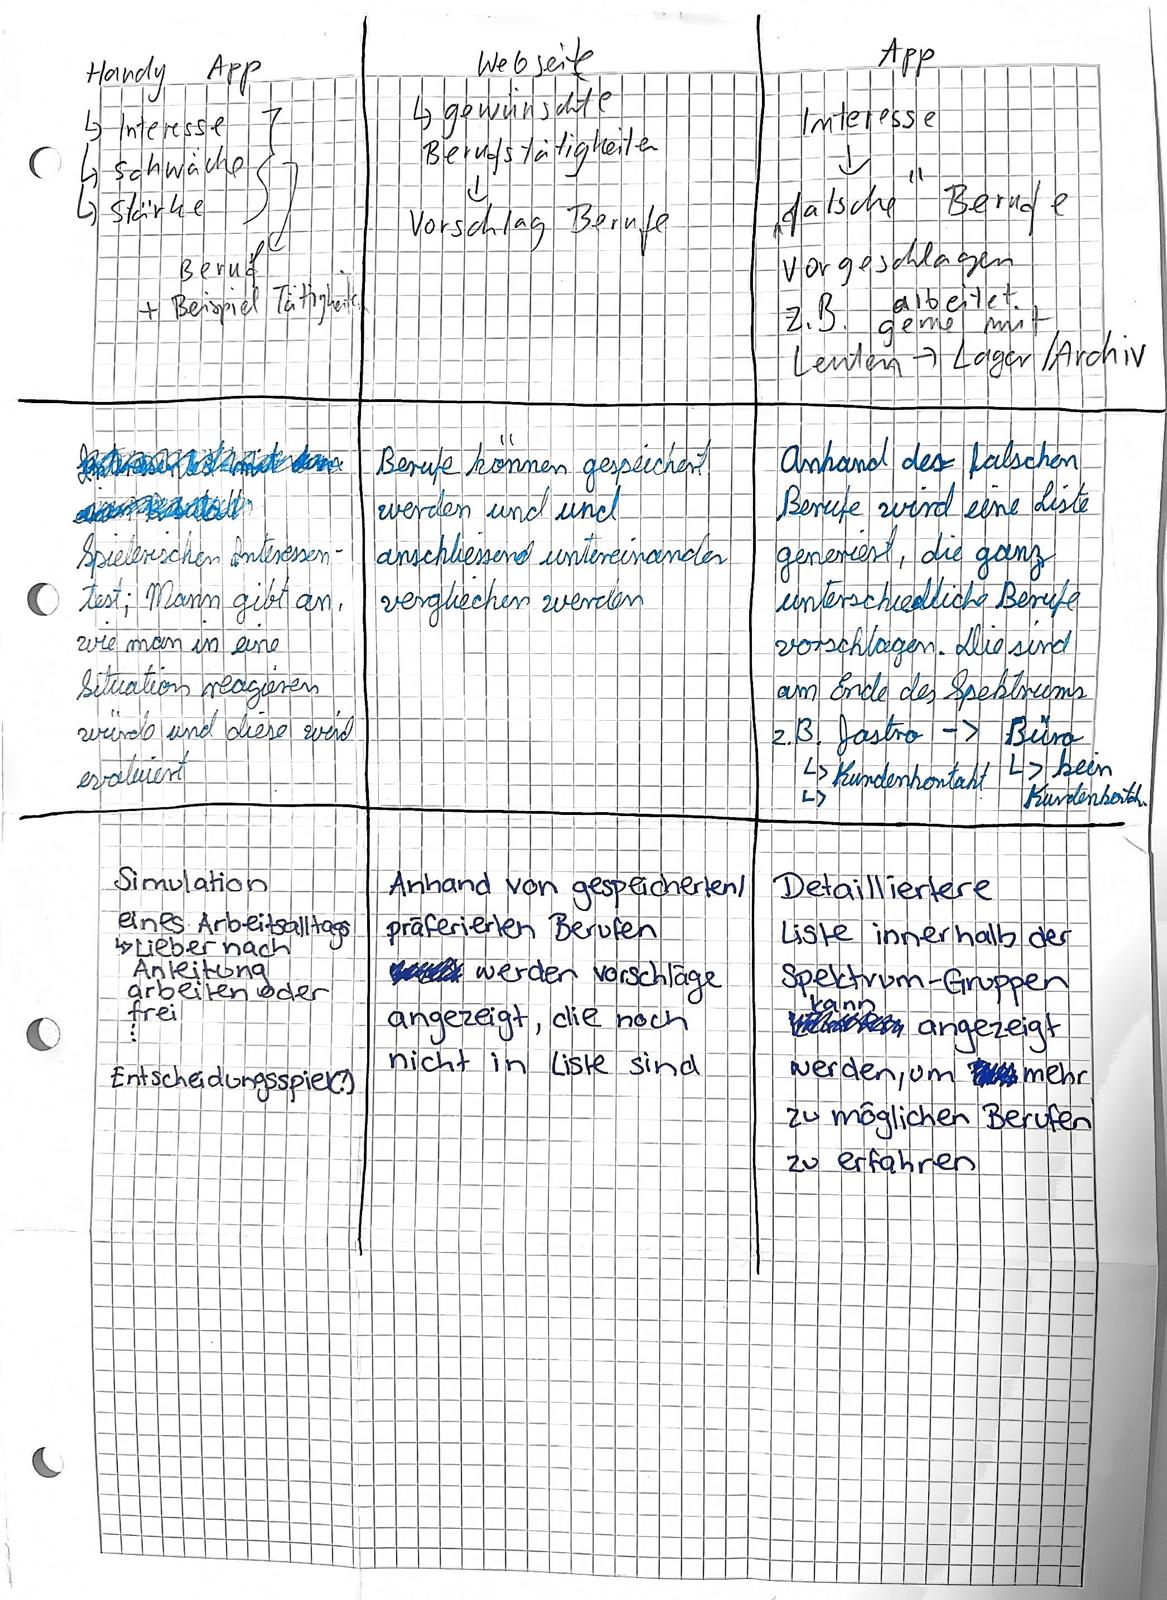 Handy App
↳ Interesse
↳ schwäche
↳ stärke
Beruf
+ Beispiel Tätigkeite
Webseite
↳ gewünschte
Berufstätigkeiten
↓
Vorschlag Berufe
App
Interesse
↓
„falsche" Berufe
vorgeschlagen
z.B. arbeitet
gerne mit
Leuten → Lager/Archiv
Spielerischen Interessen-
test; Mann gibt an,
wie man in eine
Situation reagieren
würde und diese wird
evaluiert
Berufe können gespeichert
werden und und
anschliessend untereinander
vergliechen werden
Anhand der falschen
Berufe wird eine Liste
generiert, die ganz
unterschiedliche Berufe
vorschlagen. Die sind
am Ende des Spektrums
z.B. Gastro -> Büro
↳ Kundenkontakt ↳ kein
↳ Kundenkontak.
Simulation
eines Arbeitsalltags
↳ Lieber nach
Anleitung
arbeiten oder
frei
⋮
Entscheidungsspiel(?)
Anhand von gespeicherten/
präferierten Berufen
werden vorschläge
angezeigt, die noch
nicht in Liste sind
Detailliertere
Liste innerhalb der
Spektrum-Gruppen
kann
angezeigt
werden, um mehr
zu möglichen Berufen
zu erfahren